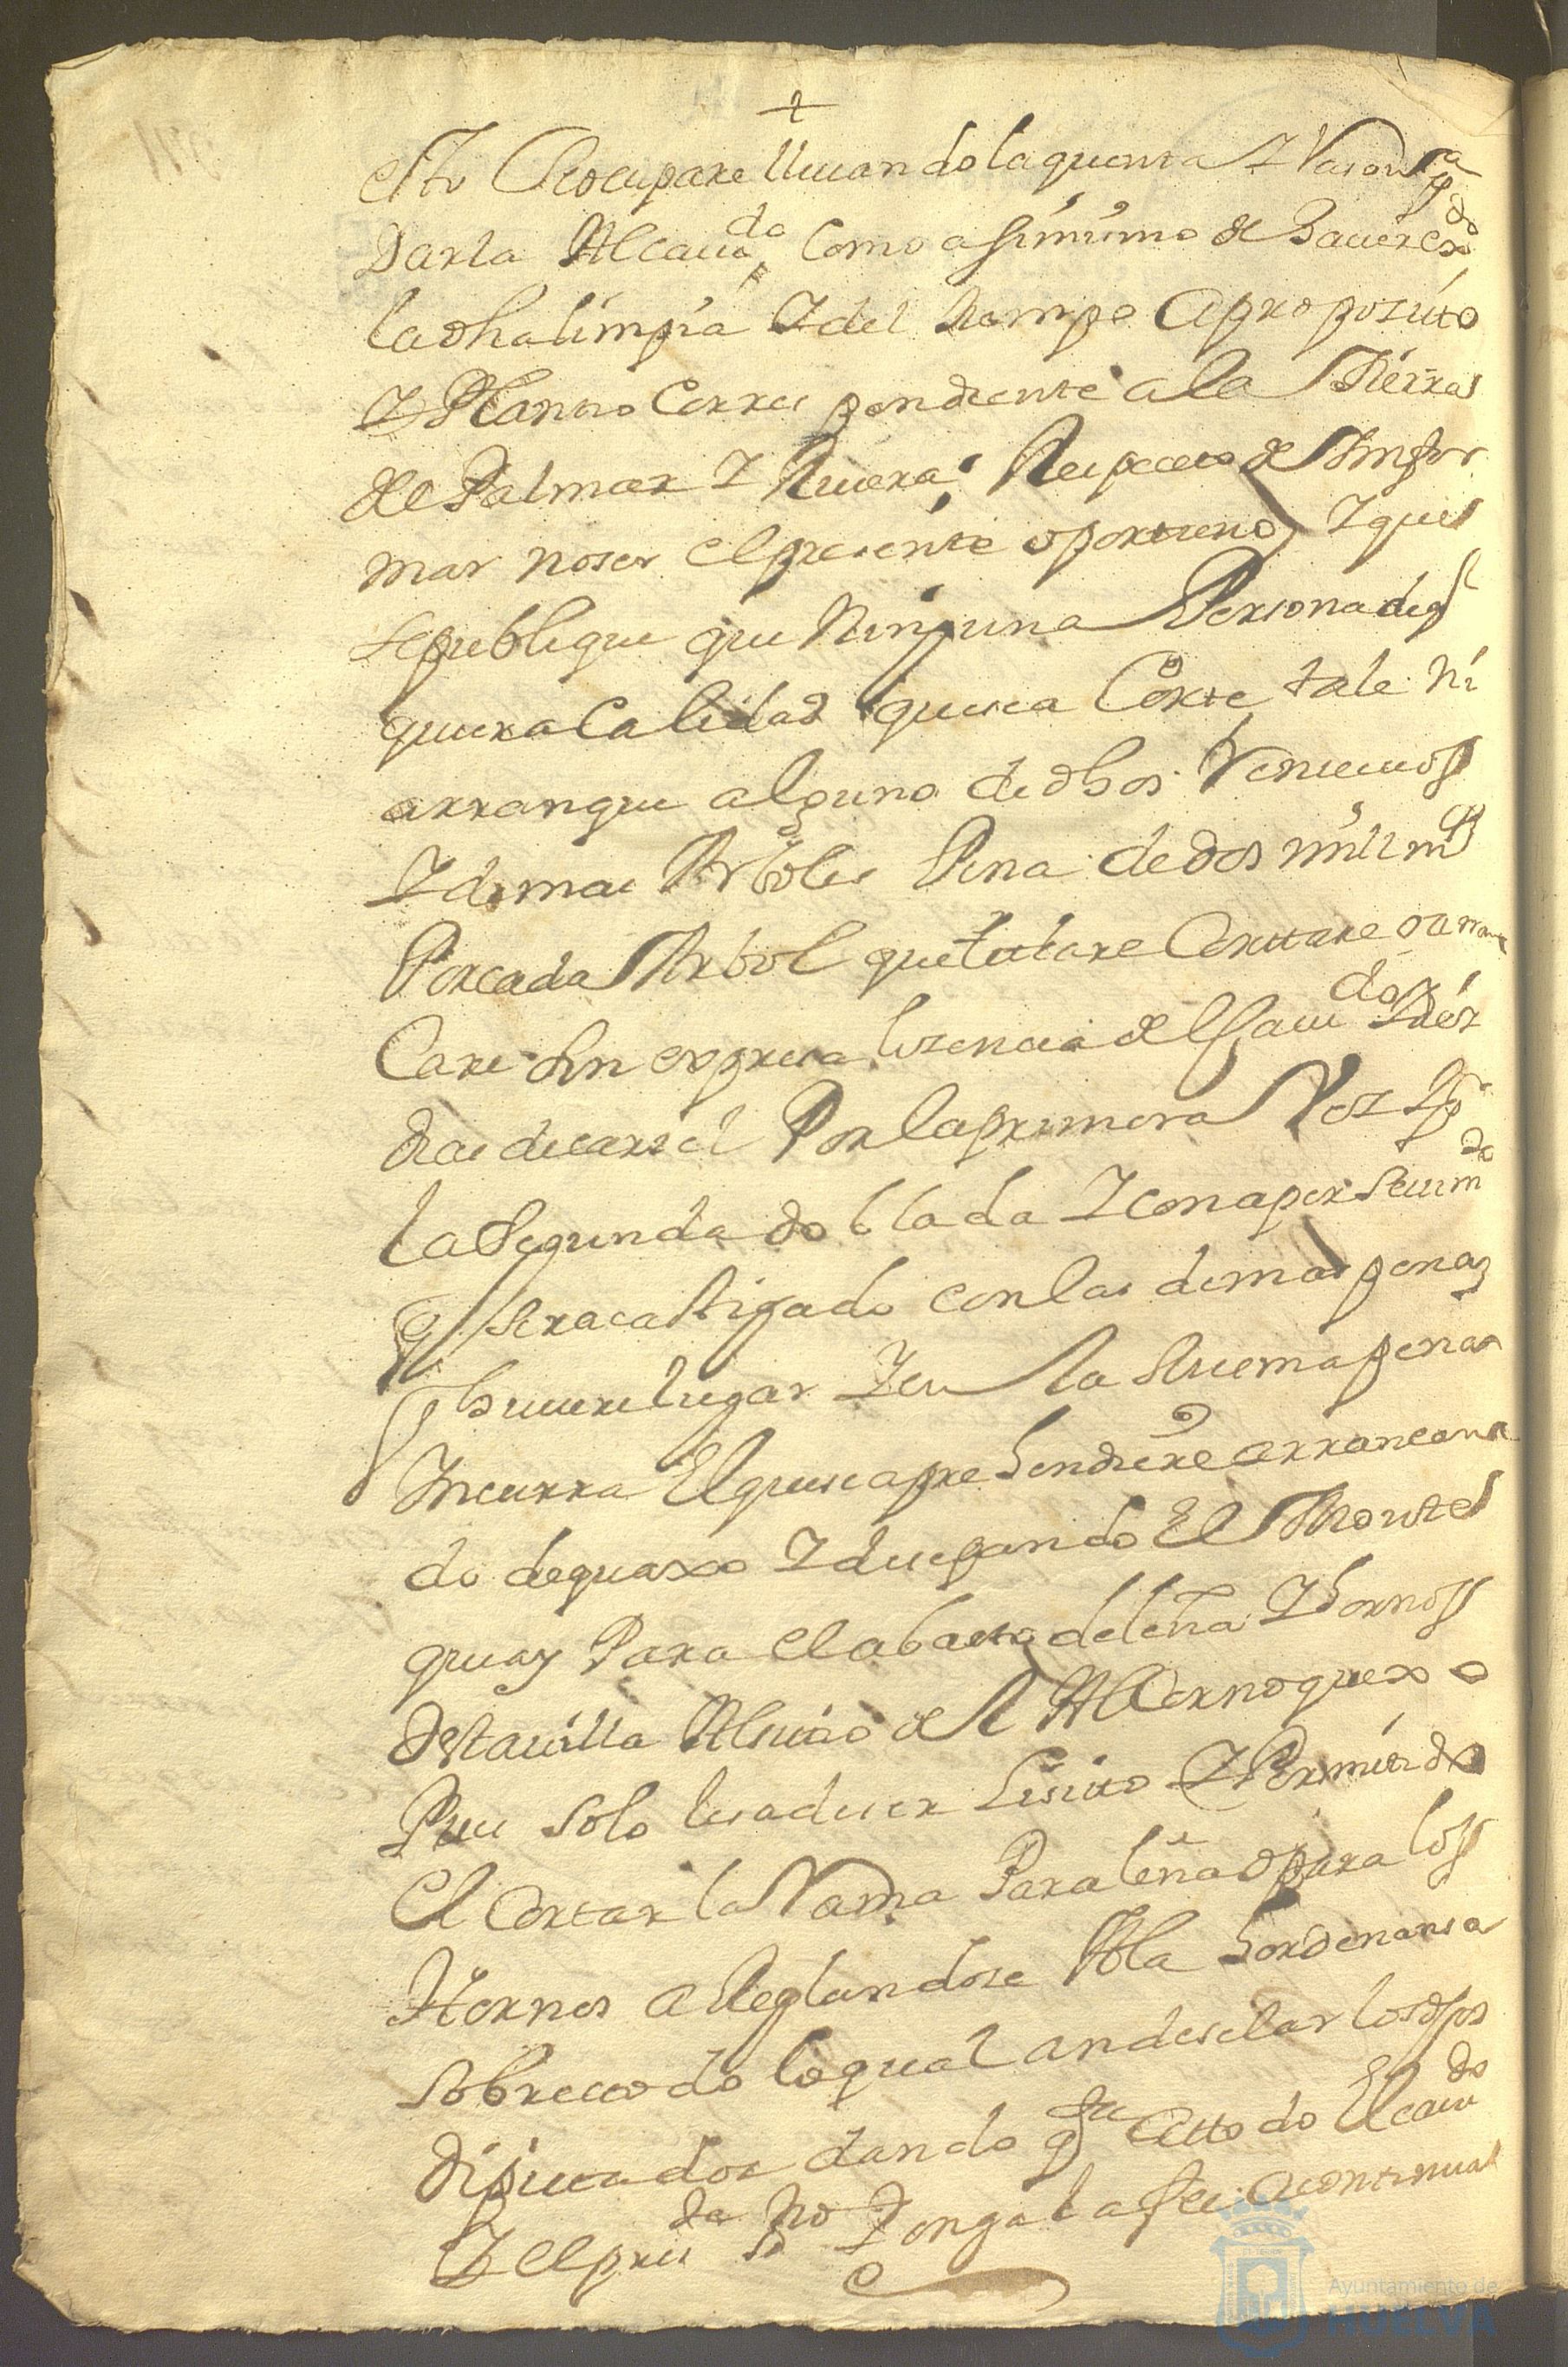 esto se ocupare lleuando la quenta I Razon pa
Darla Al cauildo Como asimismo de
la dha limpia I del tiempo a proposito
I Plantio Correspondiente a la Tierras
de Palmar I Riuera Respecto de Imfor
mar no ser el presente oportuno, I que
se publique que Ninguna Persona de ql
quiera Calidad que sea Corte tale Ni
arranque alguno de dhos
I demas Arboles Pena de dos mill ms
Por cada Arbol que talare Corttare o arran
Care sin expresa lizencia del Cauido I diez
dias de carzel Por la primera Vez I pr
la Segunda doblada I con aperseuimto
q sera castigado con las demas penas
q huuiere lugar I en la misma pena
Incurra El que se aprehendiere arrancan
do dequaxo I disipando El Monte
que ay Para el abasto de leña I hornos
desta uilla Al sitio del Alcornoquexo
Pues Solo les a de ser lisito I Permitido
El Cortar la Rama Para leña o para los
Hornos a Reglandose A la hordenansa
Sobre todo lo qual an de selar los dhos
Diputados dando qta a ttodo El cauido
I el preste ssno Ponga la fee a continua
Ayuntamiento de
HUELVA